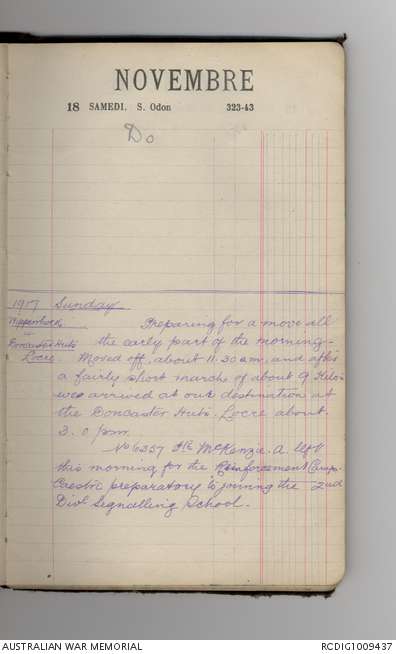 NOVEMBRE
18 SAMEDI. S. Odon 323-43
Do
1917 Sunday
Wippenhoek Preparing for a move all
to the early part of the morning.
Doncaster Huts
Locre. Moved off, about 11.30 am, and after
a fairly short march of about 9 Kilos
we arrived at our destination at
the Doncaster Huts. Locre about
3.0 p.m.
No 6357 Pte McKenzie. A. left
this morning for the Reinforcement Camp
Caestre preparatory to joining the 2nd
Divl Signalling School.
AUSTRALIAN WAR MEMORIAL
RCDIG1009437